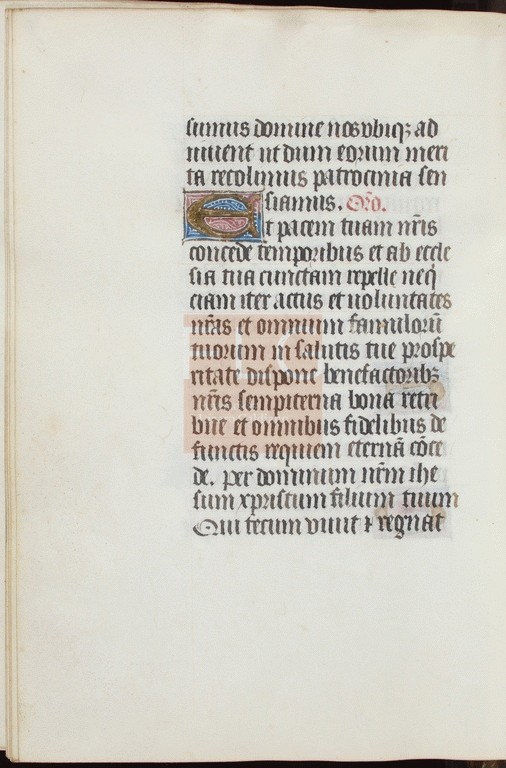 sumus domine nos vbiqz ad
iuuent ut dum eorum meri
ta recolimus patrocinia sen
siamus. Orõ.
Et pacem tuam nr̃is
concede temporibus et ab eccle
sia tua cunctam repelle neq̃
ciam iter actus et uoluntates
nr̃as et omnium famulorũ
tuorum in salutis tue prospe
ritate dispone benefactoribz
nr̃is sempiterna bona retri
bue et omnibus fidelibus de
functis requiem eternã cõce
de. per dominum nr̃m ihe
sum xpristum filium tuum
Qui tecum viuit ⁊ regnat